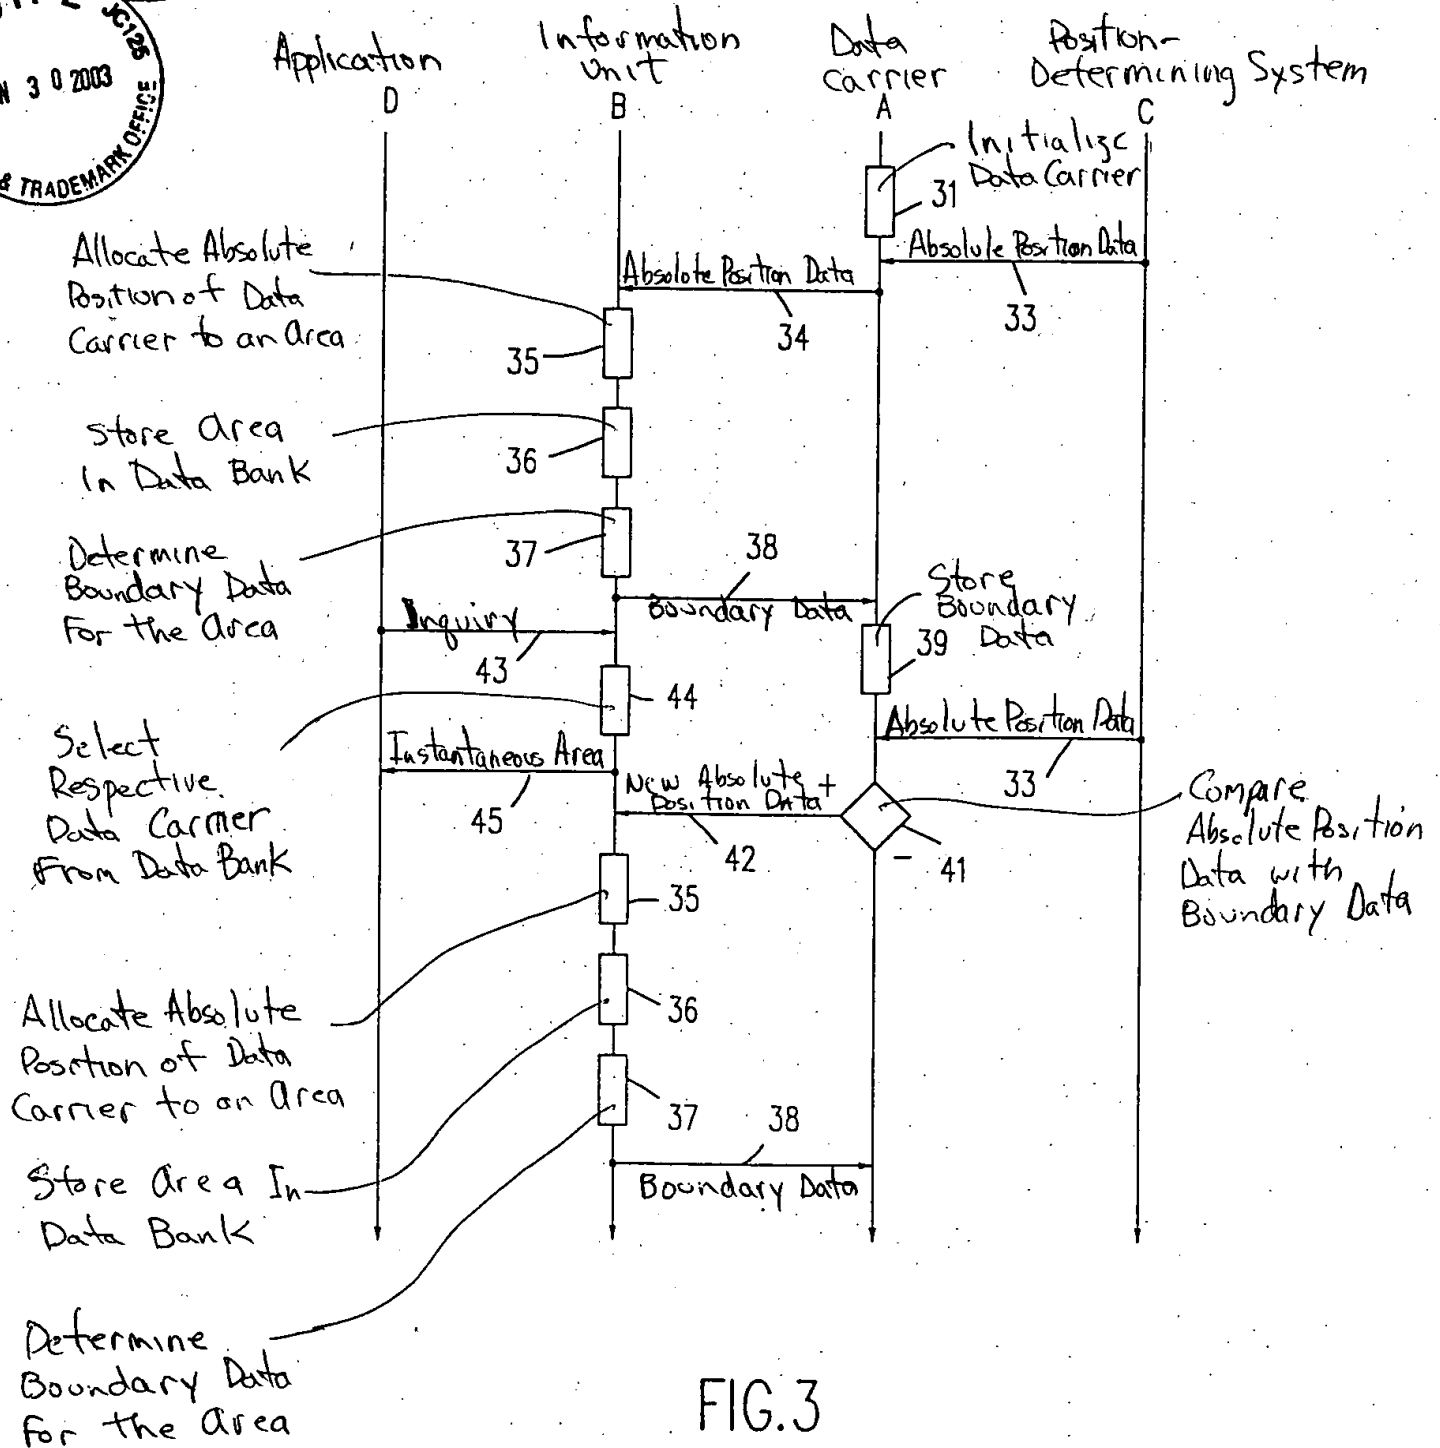 JC125
N 3 0 2003
& TRADEMARK OFFICE
Application
D
Information
Unit
B
Data
Carrier
A
Position-
Determining System
C
Initialize
Data Carrier
31
Absolute Position Data
33
Absolute Position Data
34
Allocate Absolute
Position of Data
Carrier to an Area
35
Store Area
In Data Bank
36
Determine
Boundary Data
For the Area
37
38
Boundary Data
Store
Boundary
Data
39
Inquiry
43
44
Select
Respective
Data Carrier
From Data Bank
Absolute Position Data
33
Instantaneous Area
45
New Absolute +
Position Data
42
-
41
Compare
Absolute Position
Data with
Boundary Data
35
Allocate Absolute
Position of Data
Carrier to an Area
36
Store Area In
Data Bank
37
38
Boundary Data
Determine
Boundary Data
For the Area
FIG.3